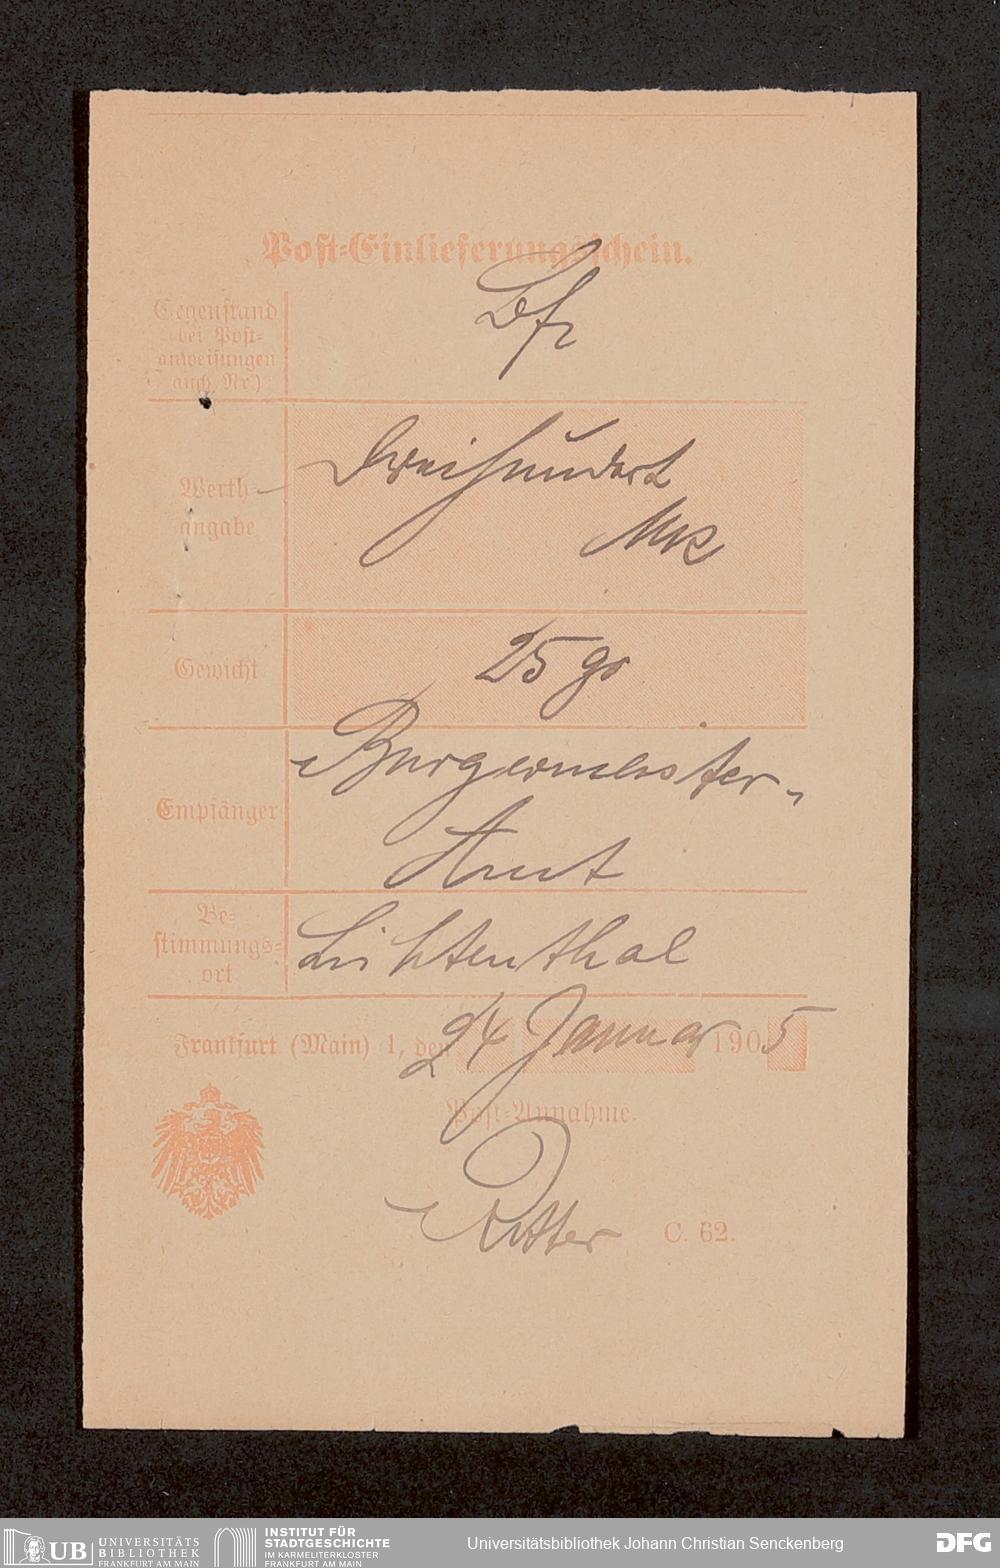 Post-Einlieferungsschein.
Gegenstand
bei Post-
anweisungen
auch Nr.)
Bf
Werth-
angabe
Dreihundert
Mk
Gewicht
25 gr
Empfänger
Burgermeister-
Amt
Be-
stimmungs-
ort
Lichtenthal
Frankfurt (Main) 1, den 24 Januar 1905
Post-Annahme.
Ritter
C. 62.
UB UNIVERSITÄTS
BIBLIOTHEK
FRANKFURT AM MAIN
INSTITUT FÜR
STADTGESCHICHTE
IM KARMELITERKLOSTER
FRANKFURT AM MAIN
Universitätsbibliothek Johann Christian Senckenberg
DFG